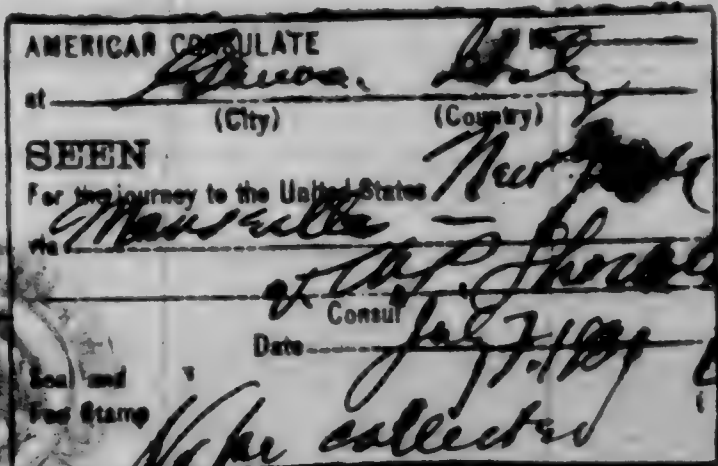 AMERICAN CONSULATE
at Genoa, Italy
(City) (Country)
SEEN
For the journey to the United States New York
via Marseille
Consul
Date July 7,
Seal and
Fee Stamp
No fee collected